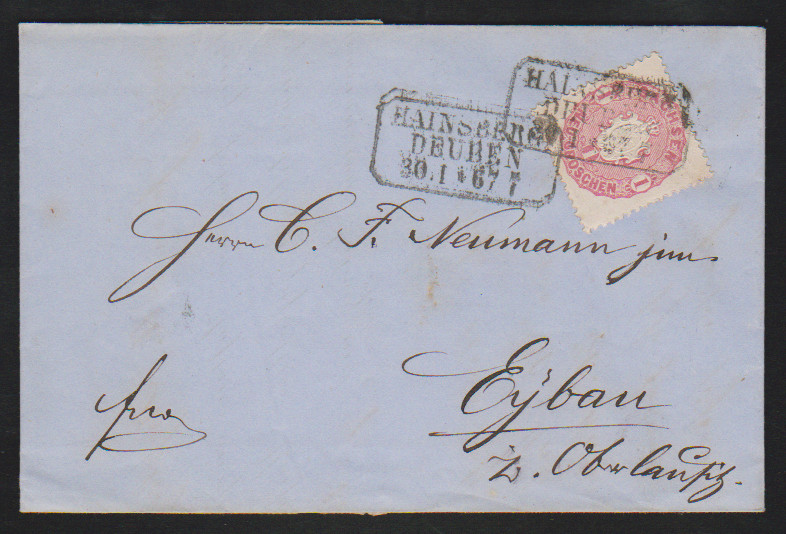 HAINSBERG
DEUBEN
30.1 * 67 7
HAI
DEU
SACHSEN
1
GROSCHEN
1
Herrn C. F. Neumann jun.
Eybau
z. Oberlausitz.